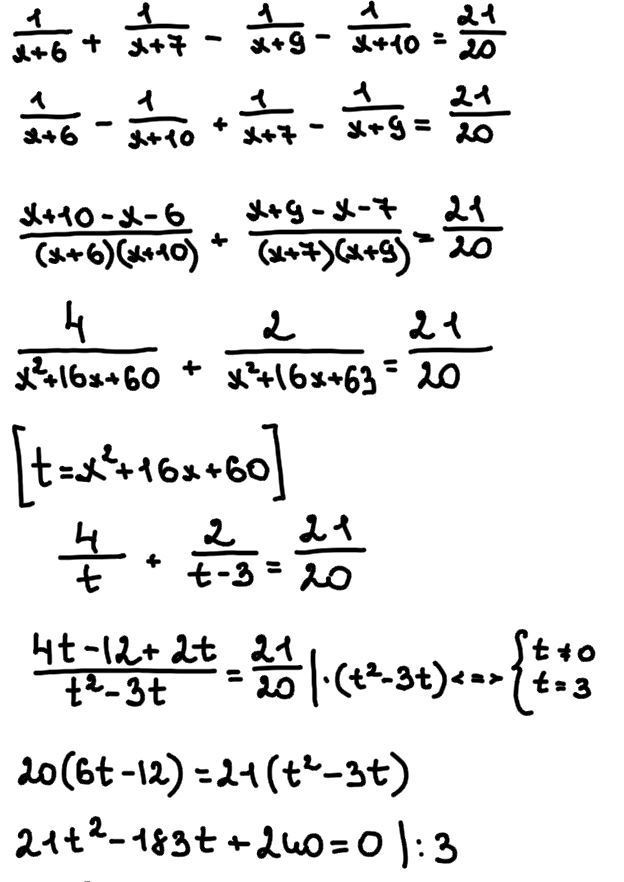 1/(x+6) + 1/(x+7) - 1/(x+9) - 1/(x+10) = 21/20
1/(x+6) - 1/(x+10) + 1/(x+7) - 1/(x+9) = 21/20
(x+10-x-6)/((x+6)(x+10)) + (x+9-x-7)/((x+7)(x+9)) = 21/20
4/(x²+16x+60) + 2/(x²+16x+63) = 21/20
[t=x²+16x+60]
4/t + 2/(t-3) = 21/20
(4t-12+2t)/(t²-3t) = 21/20 |·(t²-3t) <=> {t≠0
t=3
20(6t-12)=21(t²-3t)
21t²-183t+240=0 |:3